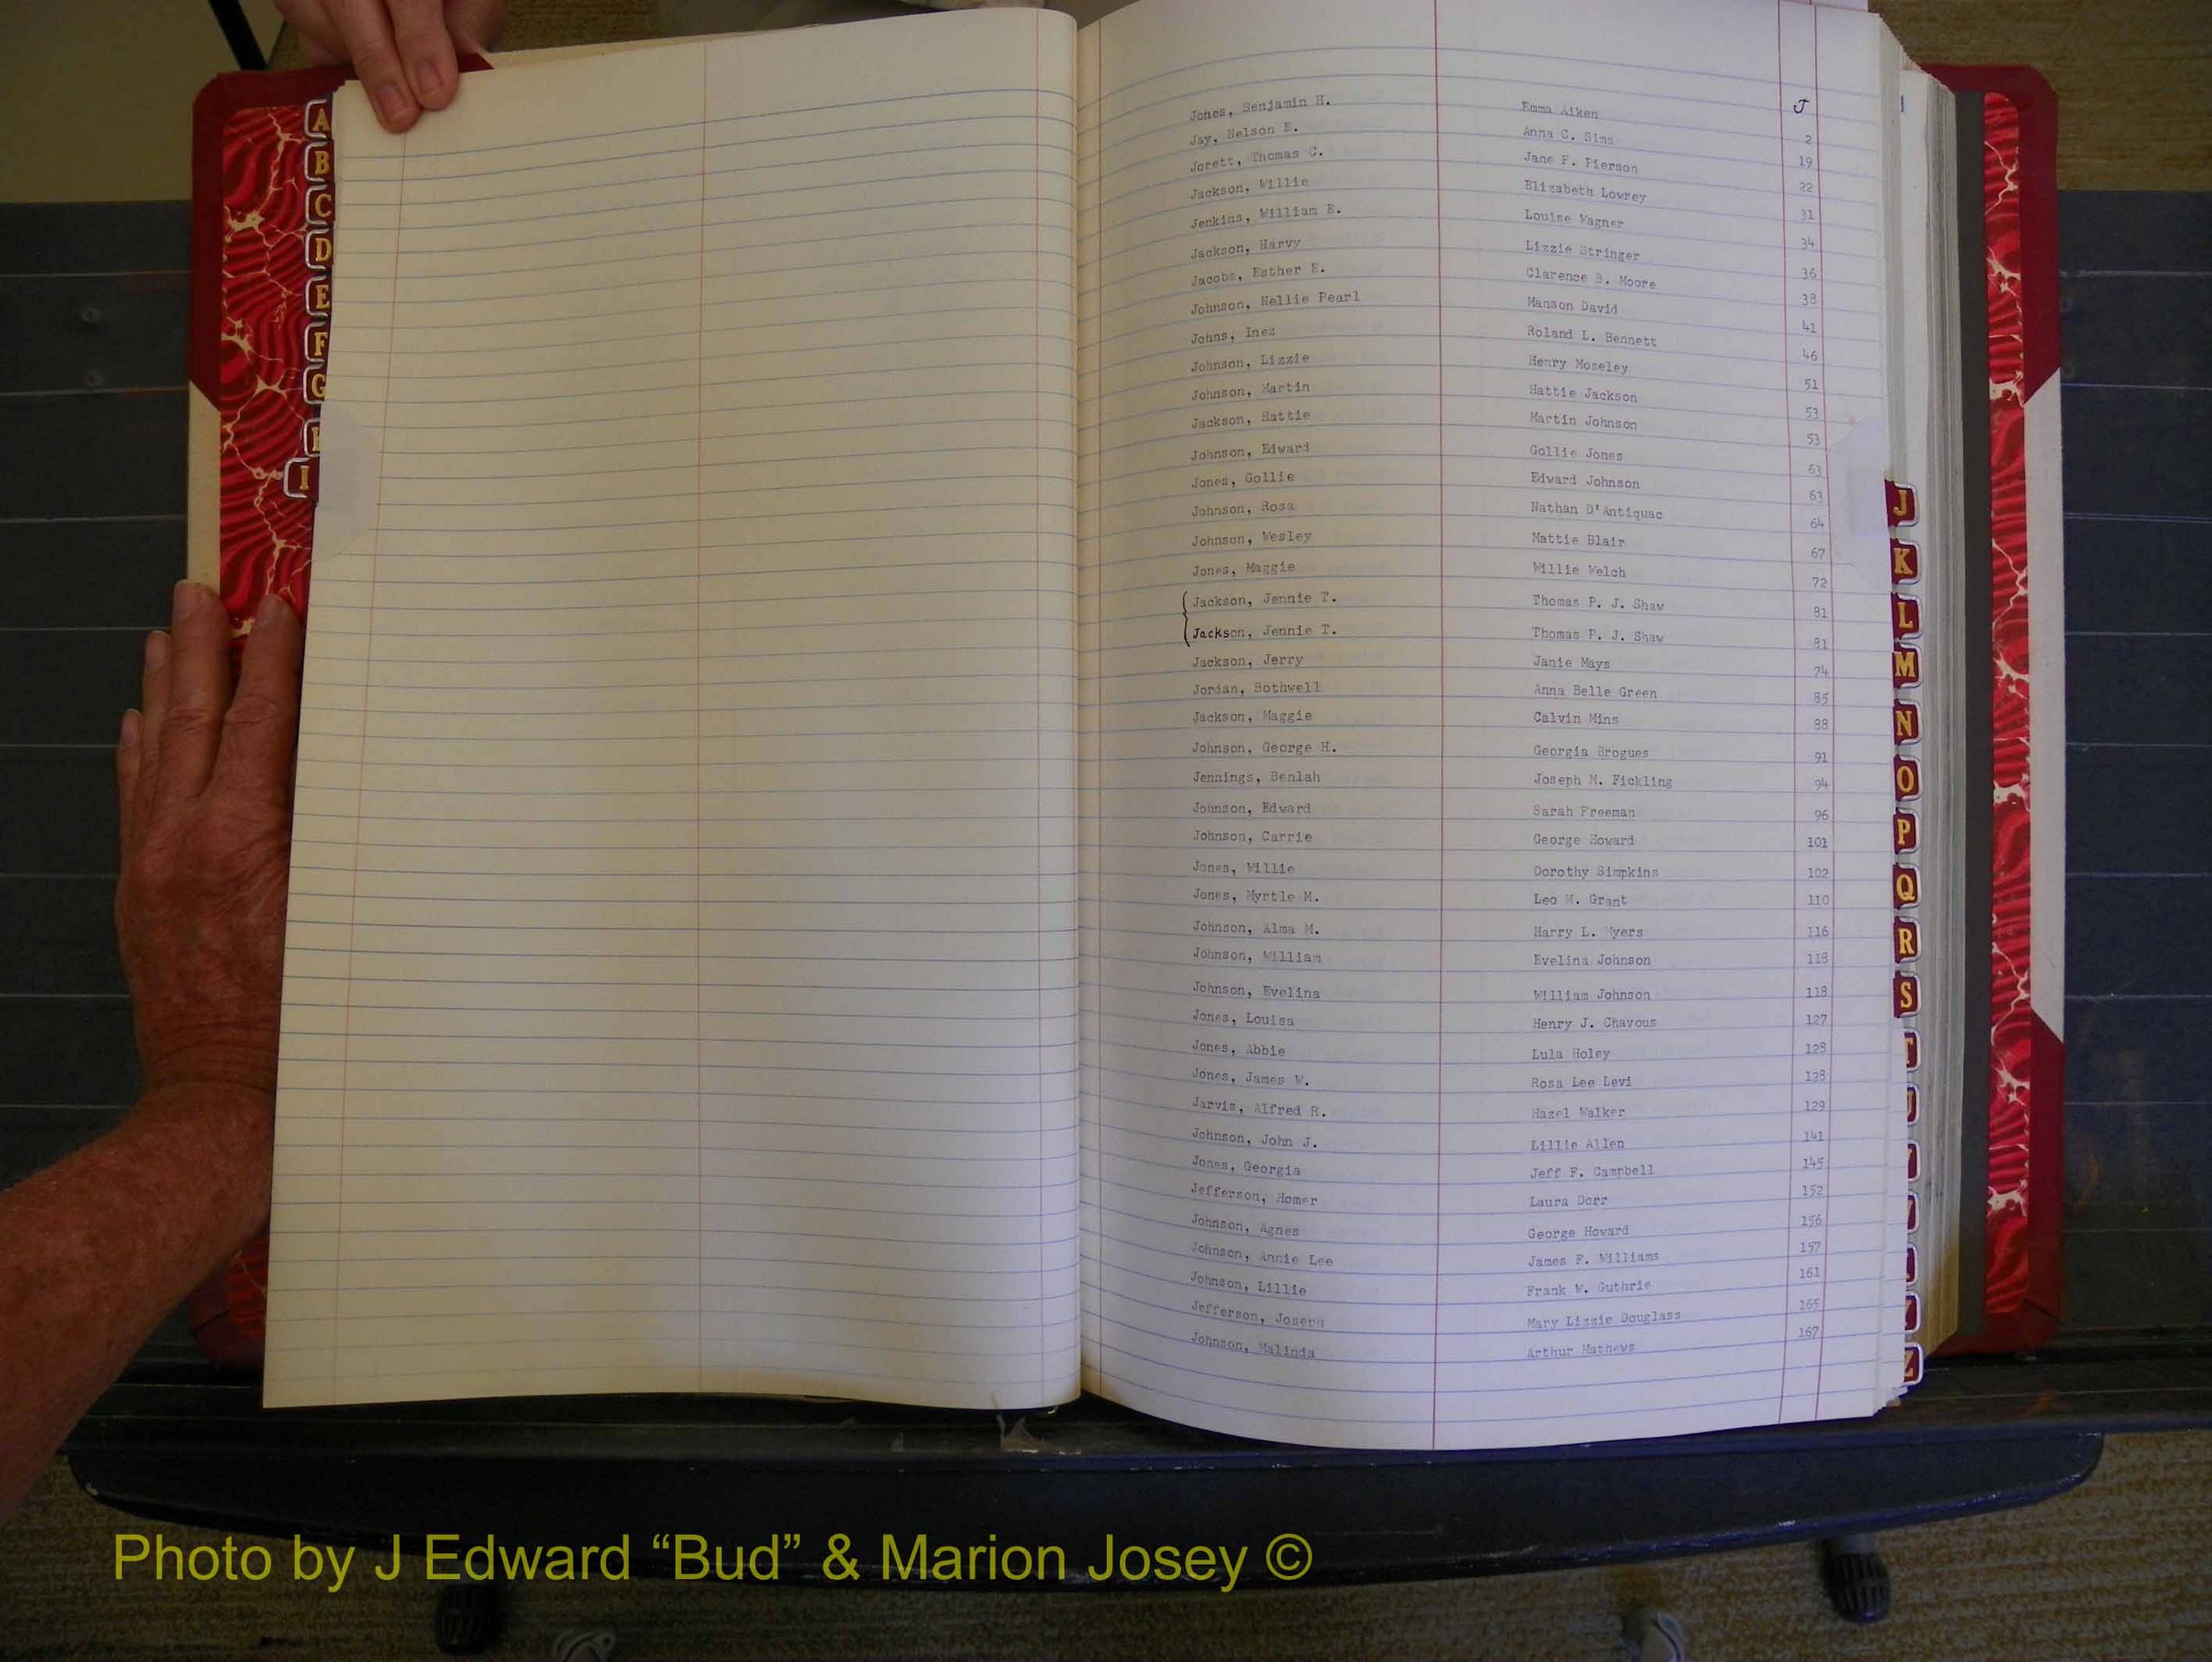 J
Jones, Benjamin H. Emma Aiken 2
Jay, Nelson E. Anna C. Sims 19
Jorett, Thomas C. Jane F. Pierson 22
Jackson, Willie Elizabeth Lowrey 31
Jenkins, William E. Louise Wagner 34
Jackson, Harvy Lizzie Stringer 36
Jacobs, Esther E. Clarence B. Moore 38
Johnson, Nellie Pearl Manson David 41
Johns, Inez Roland L. Bennett 46
Johnson, Lizzie Henry Moseley 51
Johnson, Martin Hattie Jackson 53
Jackson, Hattie Martin Johnson 53
Johnson, Edward Gollie Jones 63
Jones, Gollie Edward Johnson 63
Johnson, Rosa Nathan D'Antiquac 64
Johnson, Wesley Mattie Blair 67
Jones, Maggie Willie Welch 72
Jackson, Jennie T. Thomas P. J. Shaw 81
Jackson, Jennie T. Thomas P. J. Shaw 81
Jackson, Jerry Janie Mays 74
Jordan, Bothwell Anna Belle Green 85
Jackson, Maggie Calvin Mins 88
Johnson, George H. Georgia Brogues 91
Jennings, Benlah Joseph M. Fickling 94
Johnson, Edward Sarah Freeman 96
Johnson, Carrie George Howard 101
Jones, Willie Dorothy Simpkins 102
Jones, Myrtle M. Leo M. Grant 110
Johnson, Alma M. Harry L. Myers 116
Johnson, William Evelina Johnson 118
Johnson, Evelina William Johnson 118
Jones, Louisa Henry J. Chavous 127
Jones, Abbie Lula Holey 128
Jones, James W. Rosa Lee Levi 128
Jarvis, Alfred R. Hazel Walker 129
Johnson, John J. Lillie Allen 141
Jones, Georgia Jeff F. Campbell 145
Jefferson, Homer Laura Dorr 152
Johnson, Agnes George Howard 156
Johnson, Annie Lee James F. Williams 157
Johnson, Lillie Frank W. Guthrie 161
Jefferson, Joseph Mary Lizzie Douglass 165
Johnson, Malinda Arthur Mathews 167
A
B
C
D
E
F
G
I
J
K
L
M
N
O
P
Q
R
S
T
Z
Photo by J Edward “Bud” & Marion Josey ©